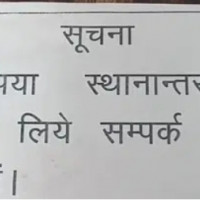 सूचना
पया स्थानान्तर
लिये सम्पर्क